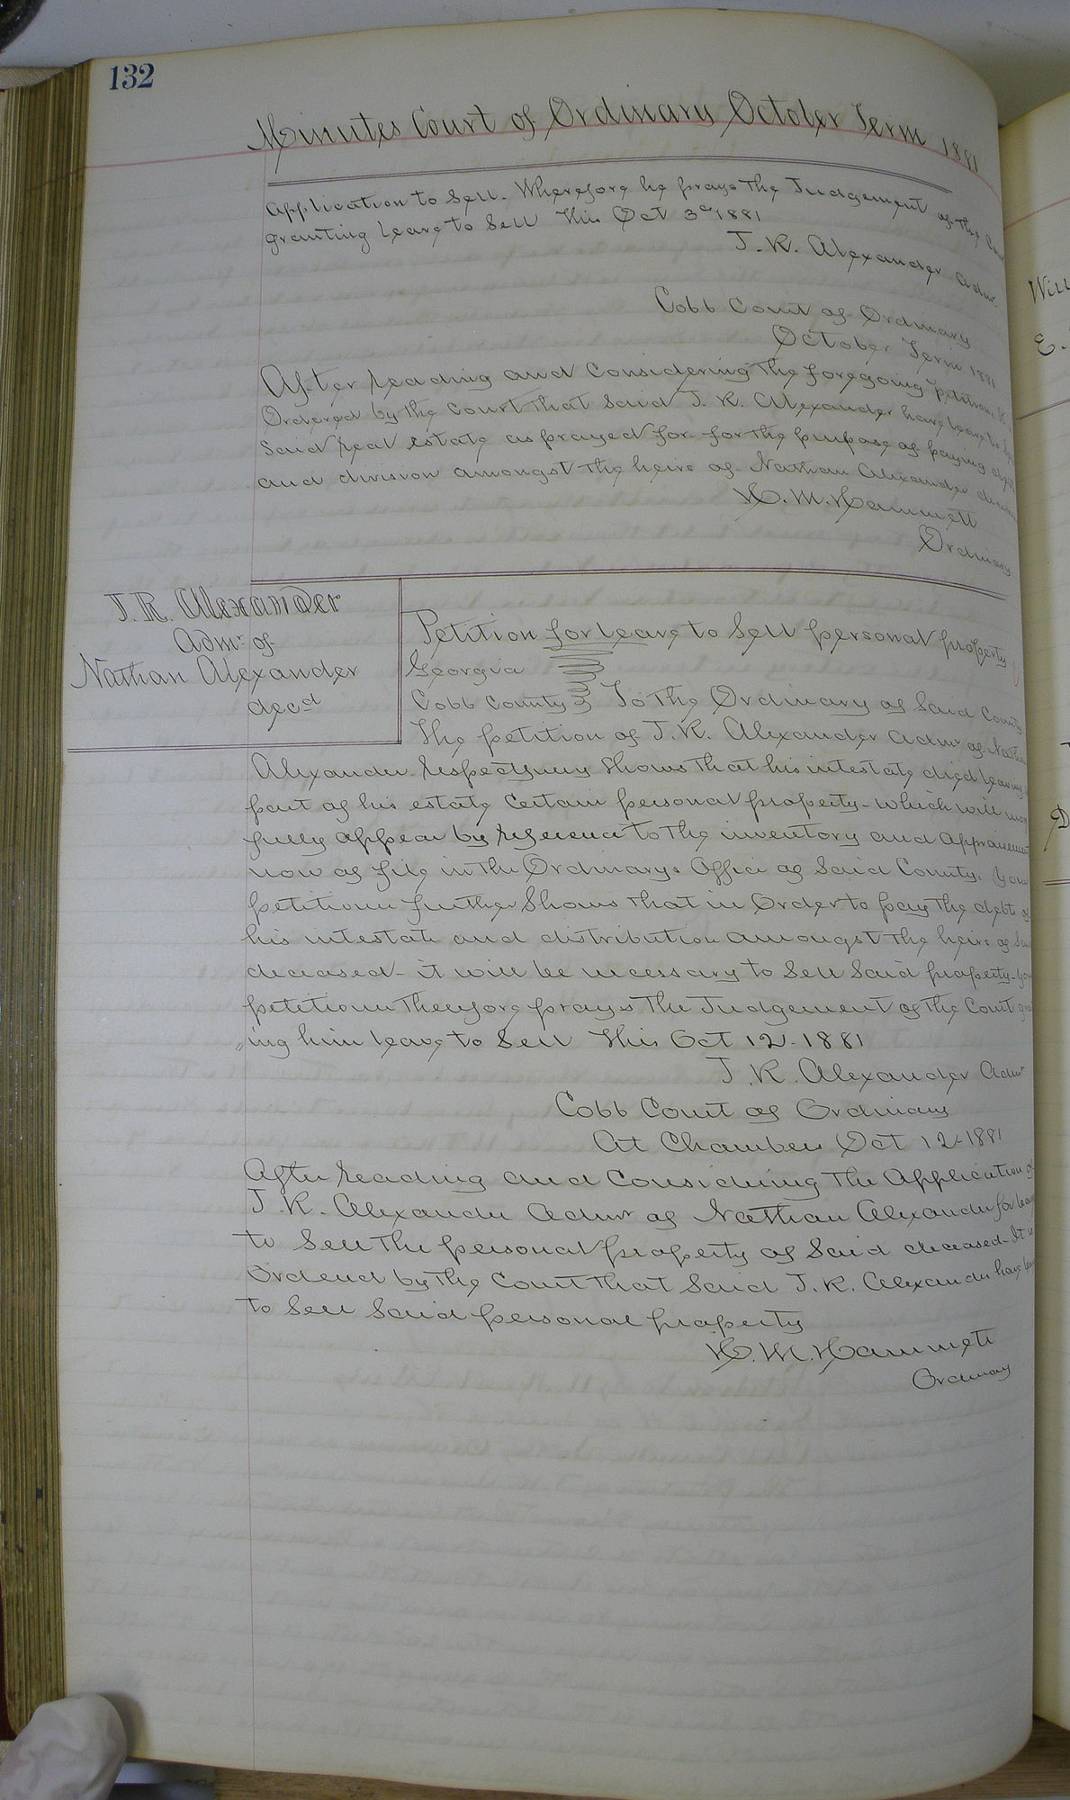 132
Minutes Court of Ordinary October Term 1881
application to Sell. Wherefore he prays the Judgement of the
granting leave to Sell this Oct 3d 1881
J. R. Alexander Admr
Cobb Court of Ordinary
October Term 1881
After reading and Considering the foregoing petition
Ordered by the Court that Said J. R. Alexander have leave to
Said real estate as prayed for for the purpose of paying debts
and division amongst the heirs of Nathan Alexander
H. M. Hammett
Ordinary
J. R. Alexander
Admr of
Nathan Alexander
decd
Petition for leave to Sell personal property
Georgia
Cobb County To the Ordinary of Said County
The petition of J. R. Alexander Admr of Nathan
Alexander Respectfully Shows that his intestate died leaving
part of his estate Certain personal property- which will more
fully appear by reference to the inventory and appraisement
now of file in the Ordinarys Office of Said County. Your
petitioner further Shows that in Order to pay the debts of
his intestate and distribution amongst the heirs of
deceased- it will be necessary to Sell Said property-
petitioner therefore prays the Judgement of the Court
"ing him leave to Sell this Oct 12- 1881
J. R. Alexander Admr
Cobb Court of Ordinary
At Chambers Oct 12- 1881
After reading and Considering the Application of
J. R. Alexander Admr of Nathan Alexander for leave
to Sell the personal property of Said deceased- It is
Ordered by the Court that Said J. R. Alexander have
to Sell Said personal property
H. M. Hammett
Ordinary
Will
E.
D